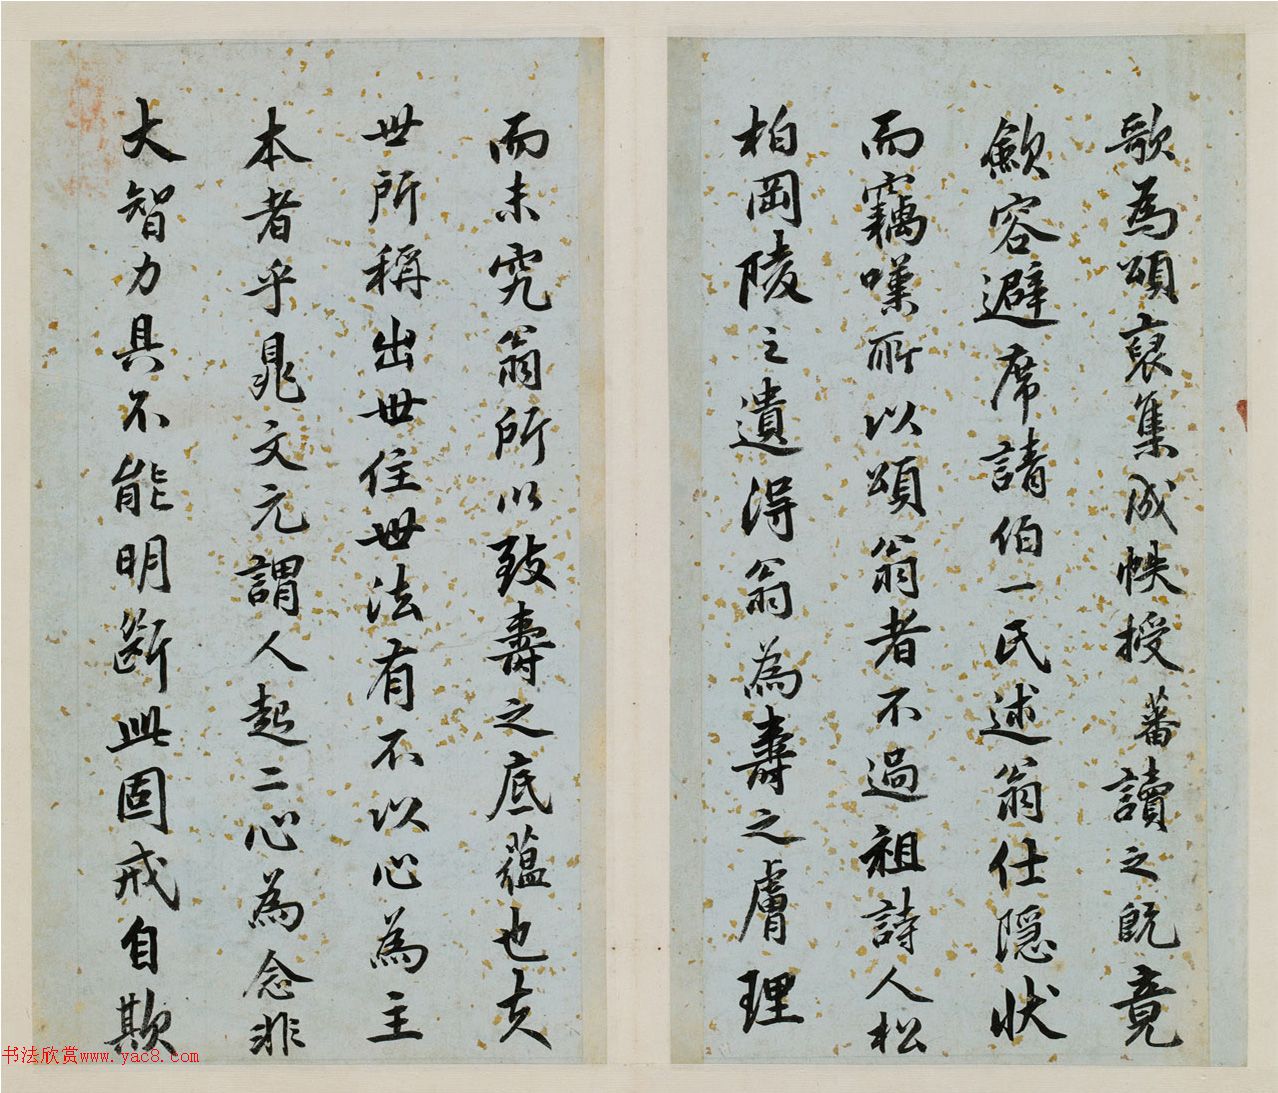 歌為頌裒集成帙授蕃讀之既竟
歛容避席請伯一氏述翁仕隱狀
而竊嘆所以頌翁者不過祖詩人松
柏岡陵之遺得翁為壽之膚理
而未究翁所以致壽之底蘊也夫
世所稱出世住世法有不以心為主
本者乎晁文元謂人起二心為念非
大智力具不能明斷此固戒自欺
书法欣赏www.yac8.com